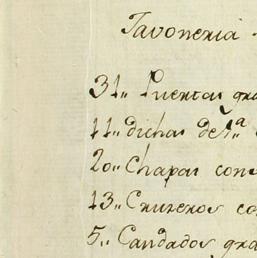 Javoneria
31,, Puertas gra
11,, dichas de 1.ª
20,, Chapas con
13,, Cruzeros co
5,, Candados gra